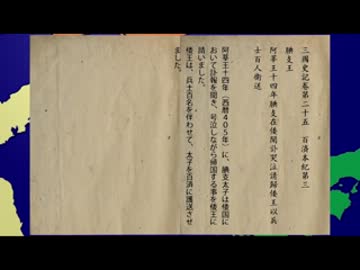 三國史記卷第二十五　百済本紀第三
腆支王
阿莘王十四年腆支在倭聞訃哭泣請歸倭王以兵
士百人衛送
阿莘王十四年（西暦４０５年）に、腆支太子は倭国に
おいて訃報を聞き、号泣しながら帰国する事を倭王に
請いました。
倭王は、兵士百名を伴わせて、太子を百済に護送させ
ました。